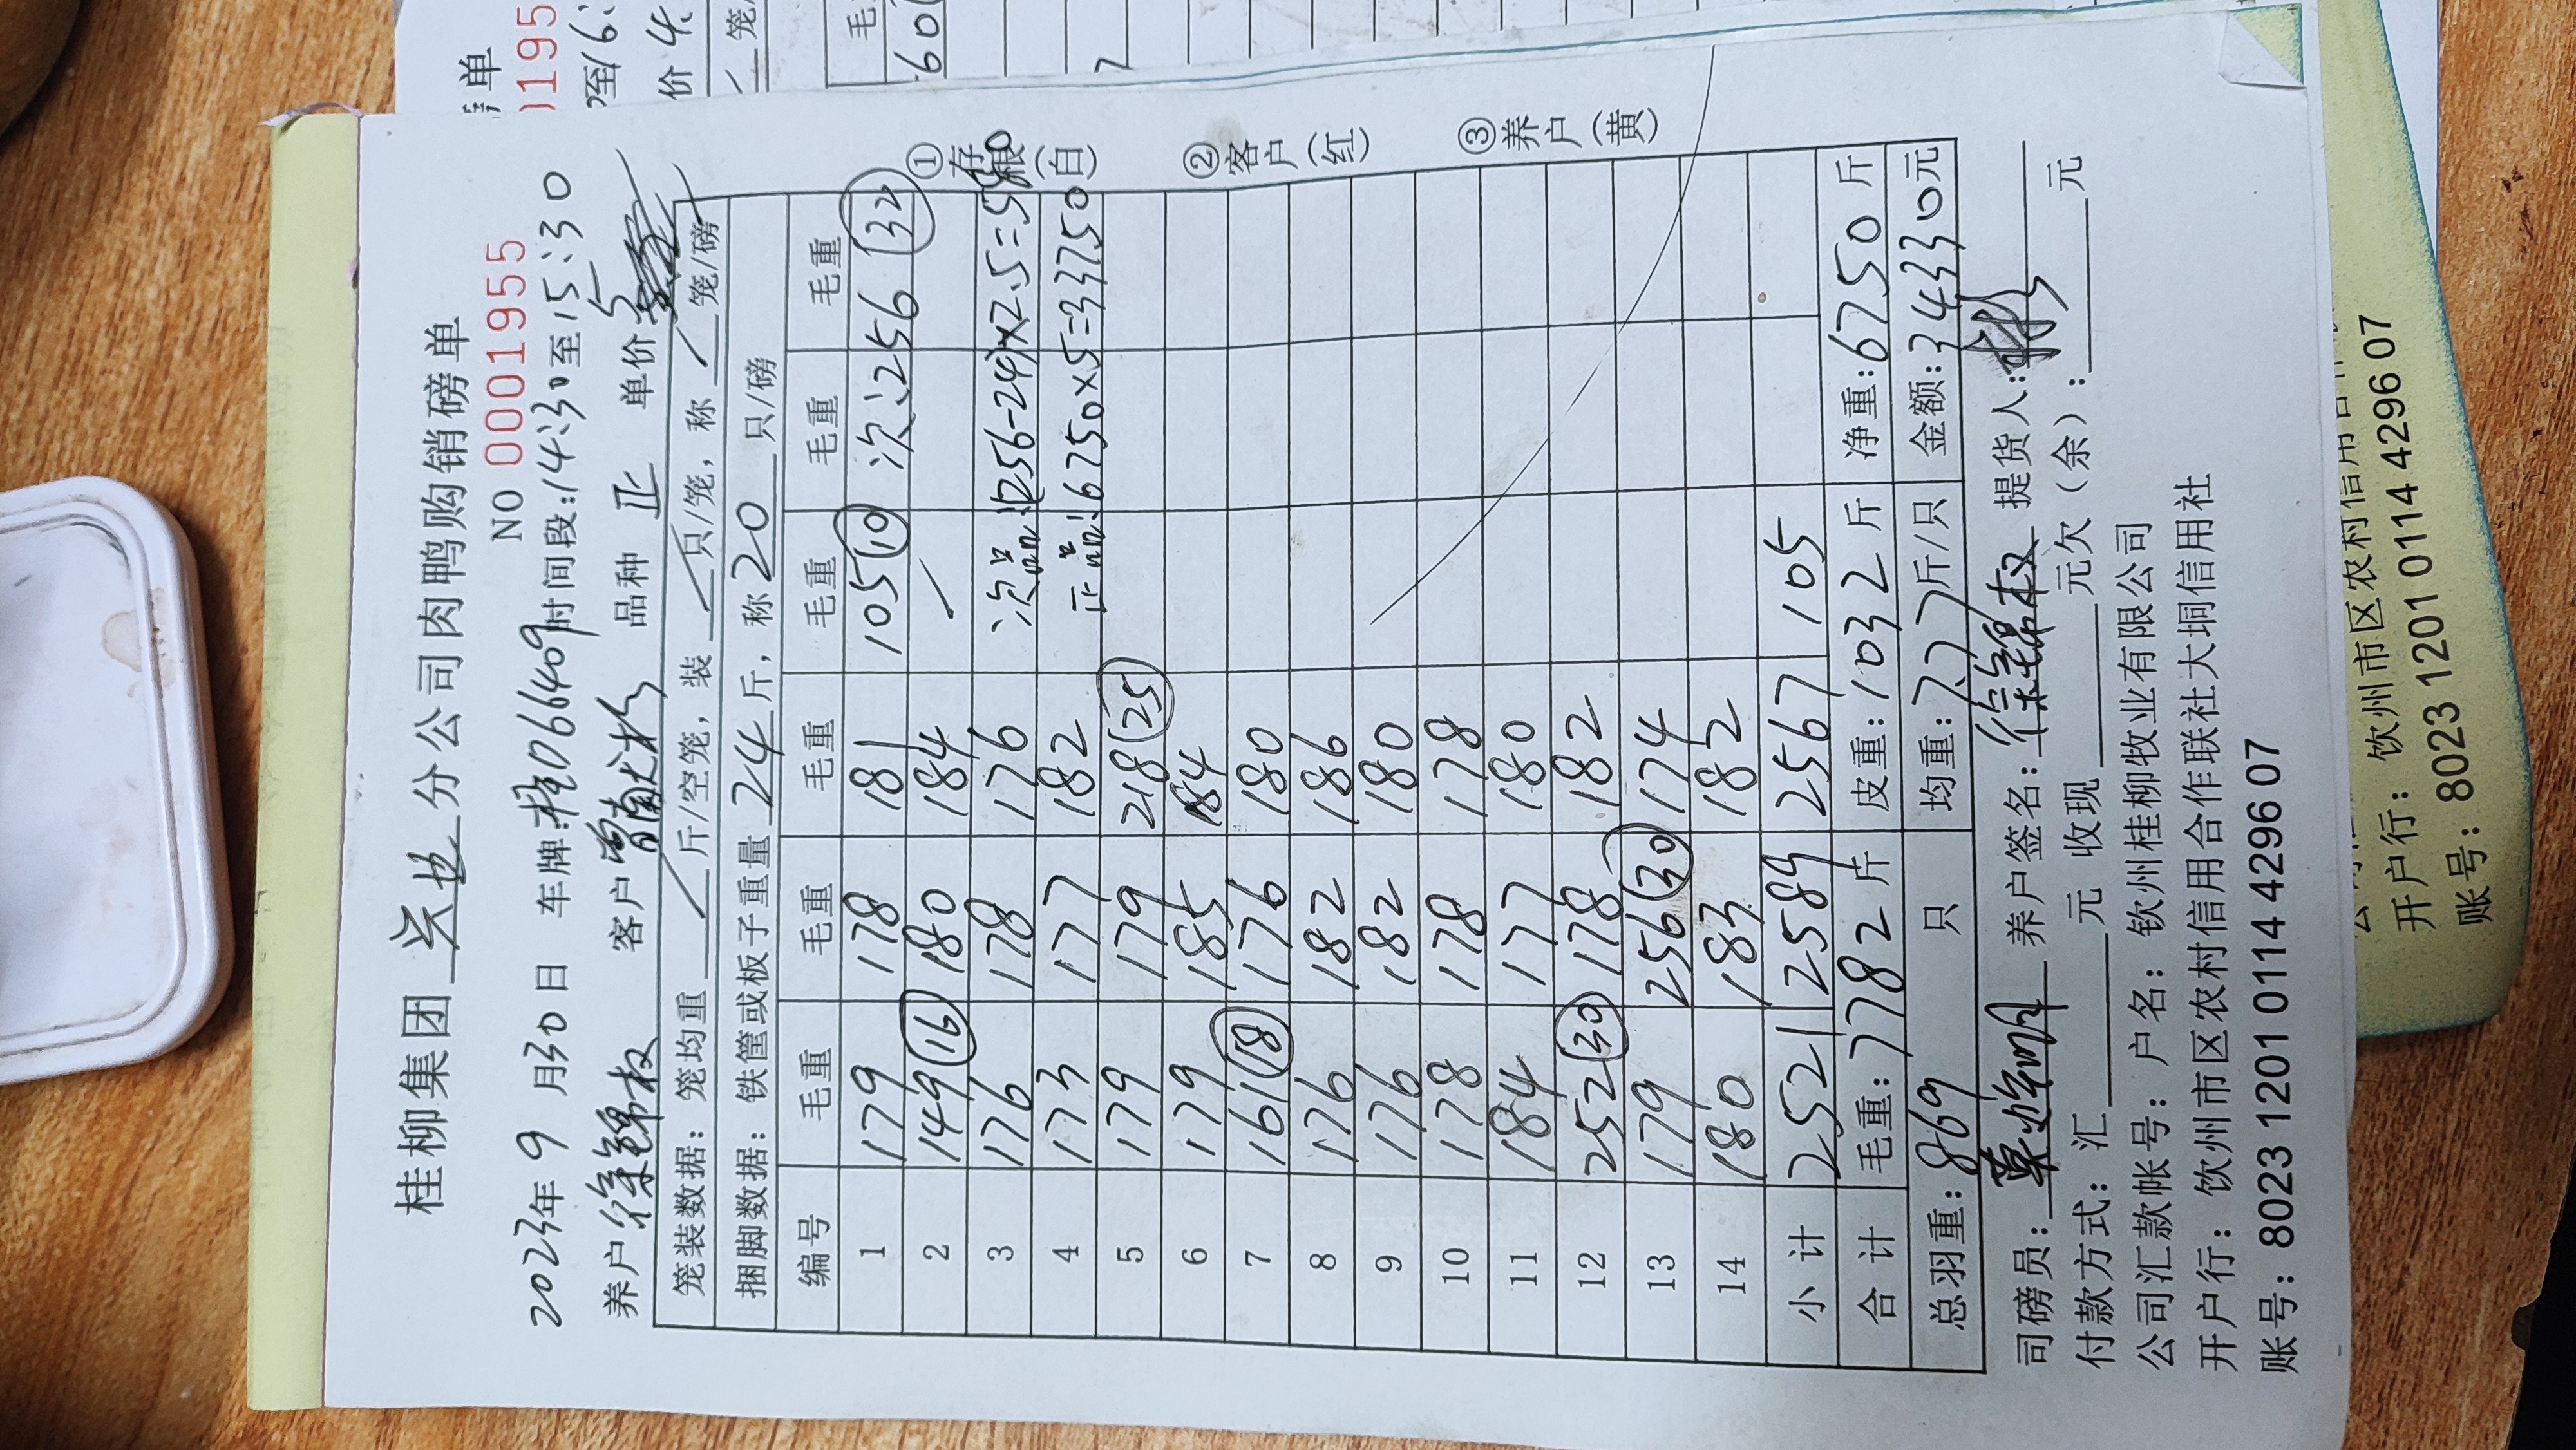 桂柳集团 分公司肉鸭购销磅单
NO 0001955
2023年 9 月30日 车牌:桂066409 时间段:14:30至15:30
养户 徐锦权 客户 曾献彬 品种 正 单价 5
笼装数据: 笼均重 / 斤/空笼, 装 / 只/笼, 称 / 笼/磅
捆脚数据: 铁筐或板子重量 24 斤, 称 20 只/磅
编号 毛重 毛重 毛重 毛重 毛重 毛重
1 179 178 181 105(10) 次:256 256(32)
2 149(16) 180 184 /
3 176 178 176 次品:(256-24)×2.5=580
4 173 177 182 正品:6750×5=33750
5 179 179 218(25)
6 179 185 184
7 161(18) 176 180
8 176 182 186
9 176 182 180
10 178 178 178
11 184 177 180
12 252(30) 178 182
13 179 256(30) 174
14 180 183 182
小计 2521 2589 2567 105
合计 毛重:7782斤 皮重:1032斤 净重:6750斤
总羽重:869 只 均重:7.77斤/只 金额:34330元
司磅员: 养户签名:徐锦权 提货人:
付款方式: 汇 元 收现 元欠(余): 元
公司汇款帐号: 户名: 钦州桂柳牧业有限公司
开户行: 钦州市区农村信用合作联社大垌信用社
账号: 8023 1201 0114 4296 07
①存根(白)
②客户(红)
③养户(黄)
开户行: 钦州市区农村信用合
账号: 8023 1201 0114 4296 07